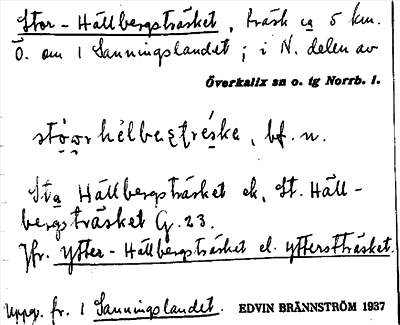 Stor-Hällbergsträsket, träsk ca 5 km.
Ö. om 1 Sanningslandet; i N. delen av
Överkalix sn o. tg Norrb. l.
bf. n.
Sta Hällbergsträsket ek, St. Häll-
bergsträsket G. 23.
Jfr. ytter-Hällbergsträsket el. ytterstträsket.
Uppg. fr. 1 Sanningslandet. EDVIN BRÄNNSTRÖM 1937